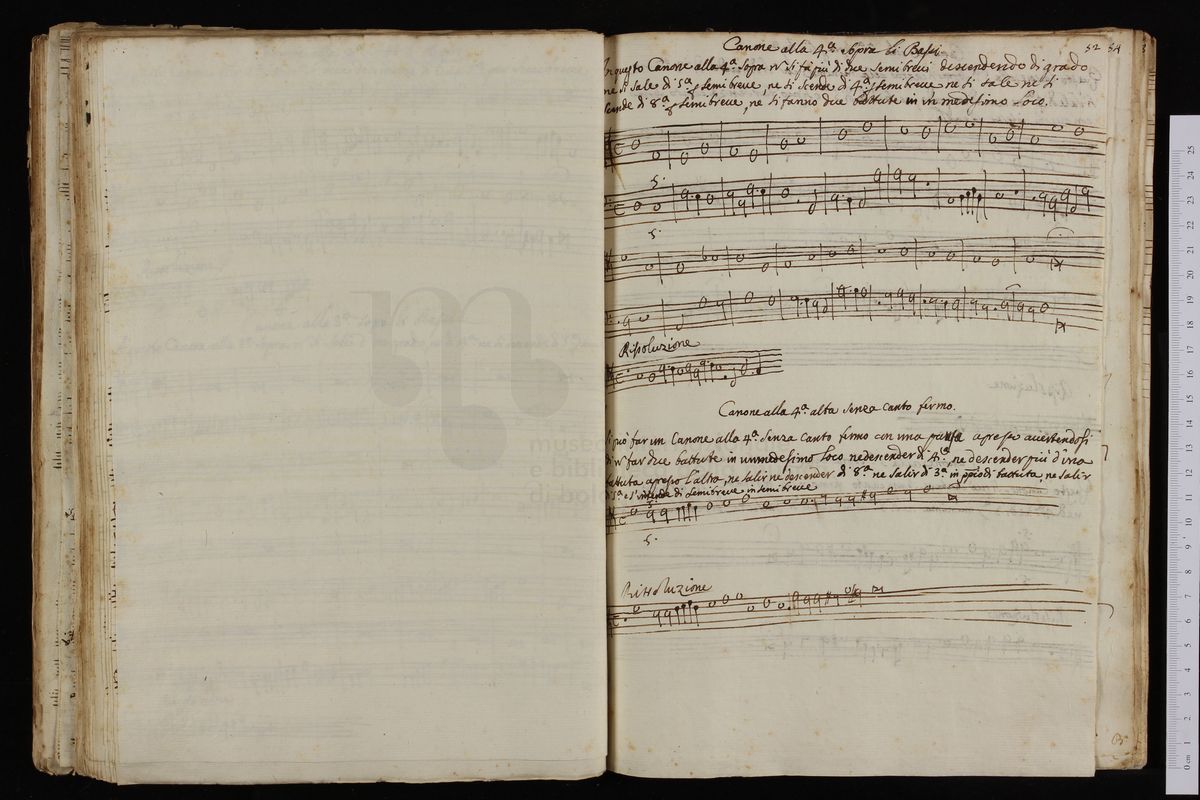 Canone alla 4.ª Sopra li Bassi
52 54
In questo Canone alla 4.ª sopra nõ si fà più di due Semibrevi descendendo di grado
ne si sale di 5.ª p semibreve, ne si scende di 4.ª p semibreve ne si sale ne si
scende di 8.ª p semibreve, ne si fanno due battute in un medesimo loco.
5.
5.
Rissoluzione
Canone alla 4.ª alta senza canto fermo.
Si può far un Canone alla 4.ª senza Canto fermo con una pausa apresso avertendosi
di nõ far due battute in un medesimo loco ne descender di 4.ª, ne descender più d'una
battuta apresso l'altra, ne salir ne descender di 8.ª ne salir di 3.ª in pncio di battuta, ne salir
5.ª e s'intende di semibreve in semibreve
5.
Rissoluzione
museo
e bibli
di bolo
0 cm 1 2 3 4 5 6 7 8 9 10 11 12 13 14 15 16 17 18 19 20 21 22 23 24 25